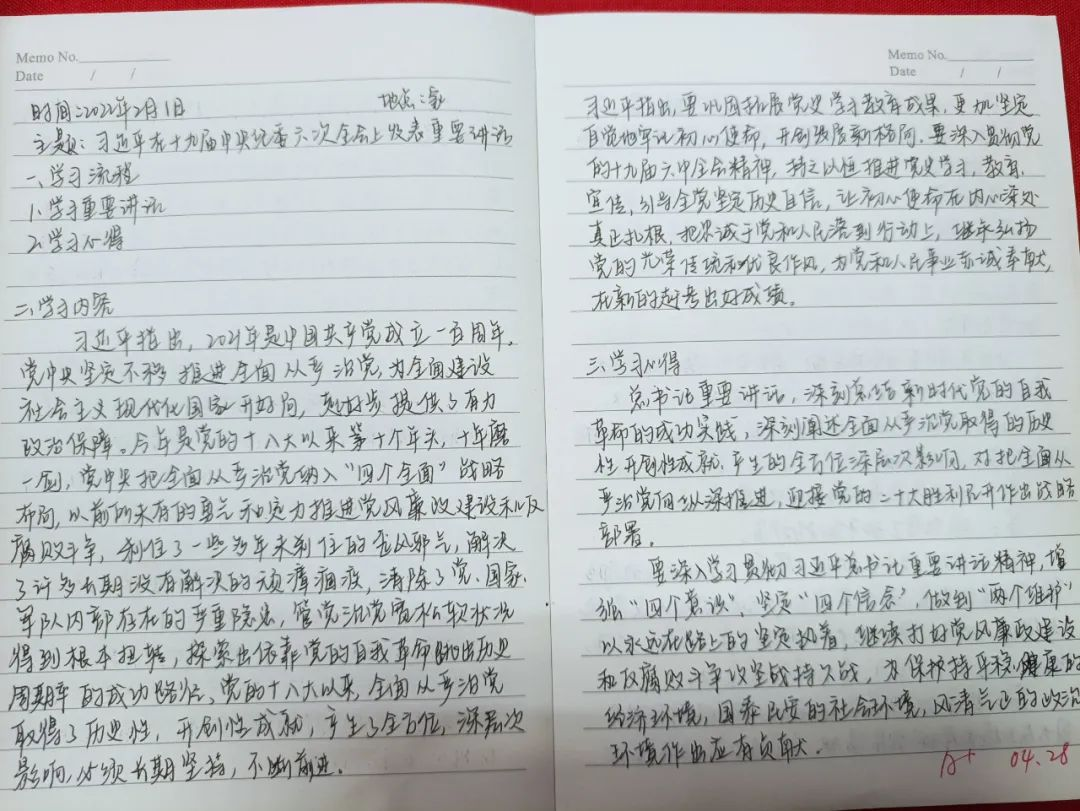 Memo No.
Date / /
时间:2022年2月1日 地点:
主题:习近平在十九届中央纪委六次全会上发表重要讲话
一、学习流程
1、学习重要讲话
2、学习心得
二、学习内容
习近平指出,2021年是中国共产党成立一百周年,
党中央坚定不移推进全面从严治党,为全面建设
社会主义现代化国家开好局,起好步提供了有力
政治保障。今年是党的十八大以来第十个年头,十年磨
一剑,党中央把全面从严治党纳入“四个全面”战略
布局,以前所未有的勇气和定力推进党风廉政建设和反
腐败斗争,刹住了一些多年未刹住的歪风邪气,解决
了许多长期没有解决的顽瘴痼疾,清除了党、国家、
军队内部存在的严重隐患,管党治党宽松软状况
得到根本扭转,探索出依靠党的自我革命跳出历史
周期率的成功路径。党的十八大以来,全面从严治党
取得了历史性,开创性成就,产生了全方位,深层次
影响,必须长期坚持,不断前进。
Memo No.
Date / /
习近平指出,要巩固拓展党史学习教育成果,更加坚定
自觉地牢记初心使命,开创发展新格局。要深入贯彻党
的十九届六中全会精神,持之以恒推进党史学习,教育,
宣传,引导全党坚定历史自信,让初心使命在内心深处
真正扎根,把忠诚于党和人民落到行动上,继承弘扬
党的光荣传统和优良作风,为党和人民事业赤诚奉献,
在新的赶考出好成绩。
三、学习心得
总书记重要讲话,深刻总结新时代党的自我
革命的成功实践,深刻阐述全面从严治党取得的历史
性开创性成就,产生的全方位深层次影响,对把全面从
严治党向纵深推进,迎接党的二十大胜利召开作出战略
部署。
要深入学习贯彻习近平总书记重要讲话精神,增
强“四个意识”,坚定“四个信念”,做到“两个维护”
以永远在路上的坚定执着,继续打好党风廉政建设
和反腐败斗争攻坚战持久战,为保护持平稳健康的
经济环境,国泰民安的社会环境,风清气正的政治
环境作出应有贡献.
A+ 04.28